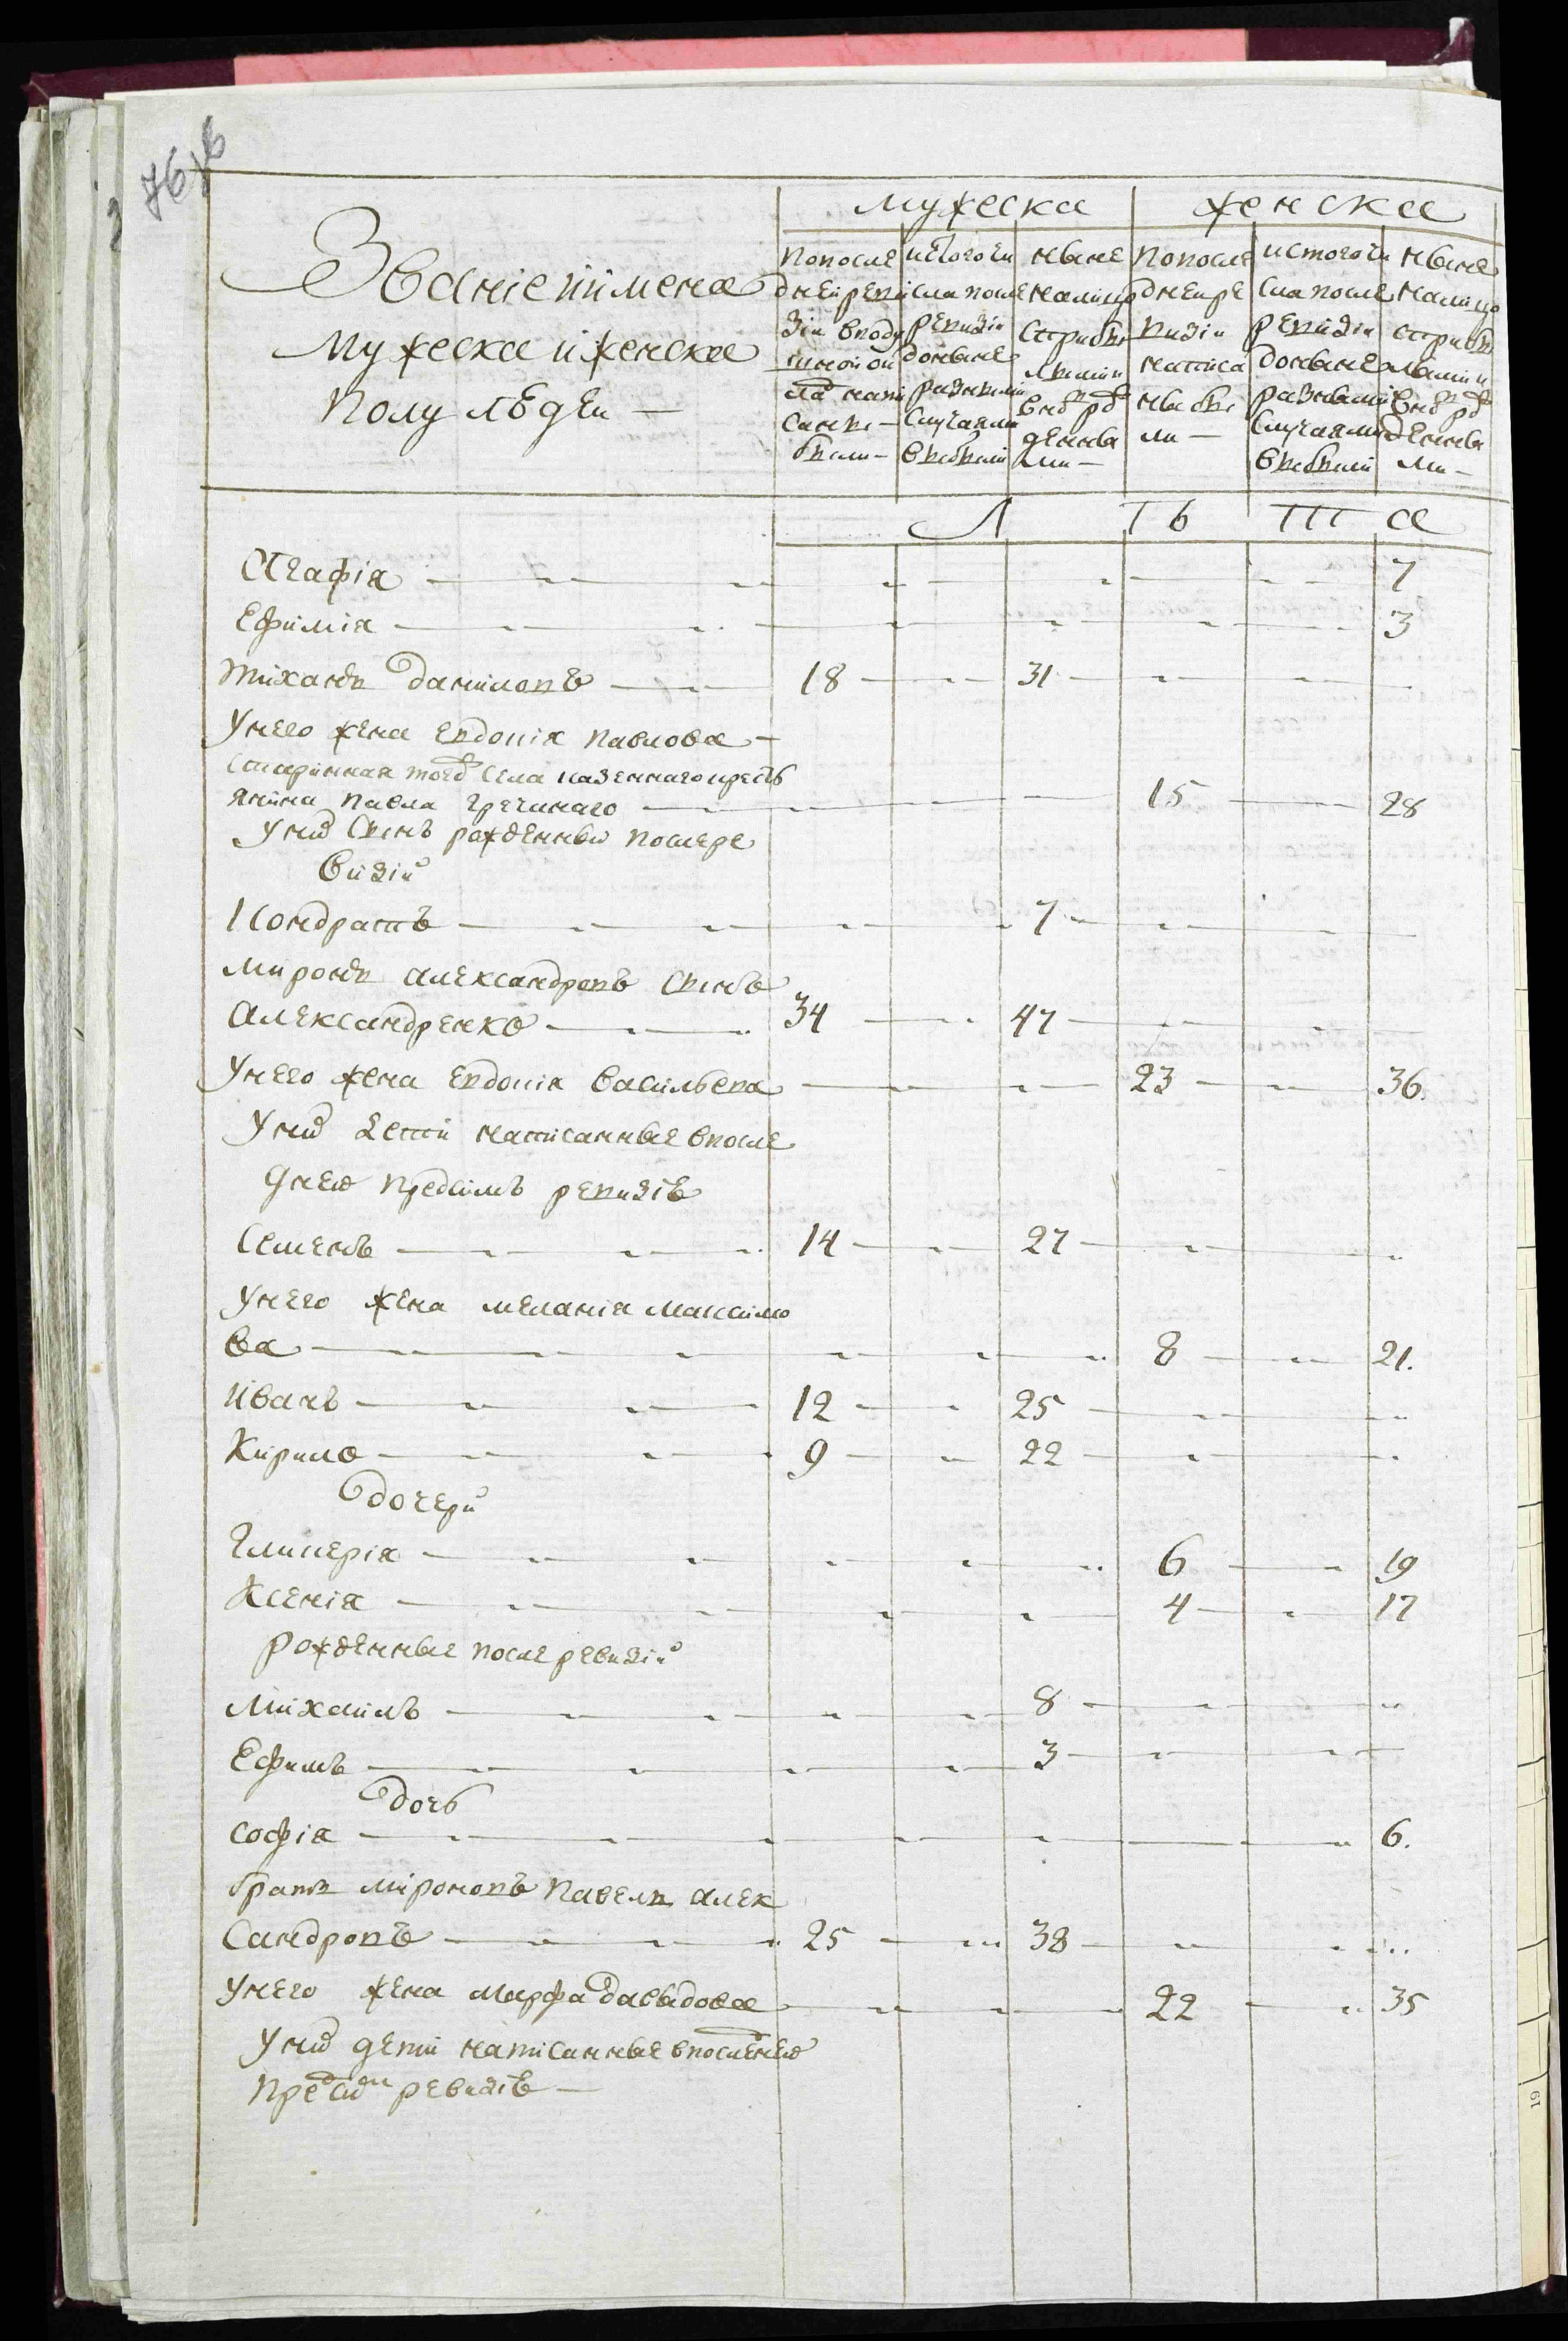 76,б
Званіе ии имена
мужеска и женска
полу людеи —
мужеска
женска
попосле
днеи реви
зіи вподу
ис того чи
сла после
ревизіи
доныне
разными
случаями
ныне
налицо
попосле
днеи ре
визіи
написа
ны бы
ли —
ис того чи
сла после
ревизіи
доныне
разными
случаями
ныне
налицо
Л ѣ т а
Агафія 7
Ефимія 3
Тихонъ Даниловъ 18 31
Унего жена Евдокія Павлова
старинная тогож села казенного кресть
янина Павла Гречинаго 15 28
Уних сынъ рожденный после ре
визіи
Кондратъ 7
Миронъ Александровъ сынъ
Александренко 34 47
Унего жена Евдокія Васильева 23 36.
Уних дети написанные впосле
днею пред симъ ревизію
Семенъ 14 27
Унего жена Меланія Максимо
ва 8 21.
Иванъ 12 25
Кирило 9 22
дочери
Гликерія 6 19
Ксенія 4 17
рожденные после ревизіи
Михаилъ 8
Ефимъ 3
дочь
Софія 6.
братъ Мироновъ Павелъ Алек
сандровъ 25 38
Унего жена Марфа Давыдова 22 35
Уних дети написанные впоследнею
пред сим ревизію —
19